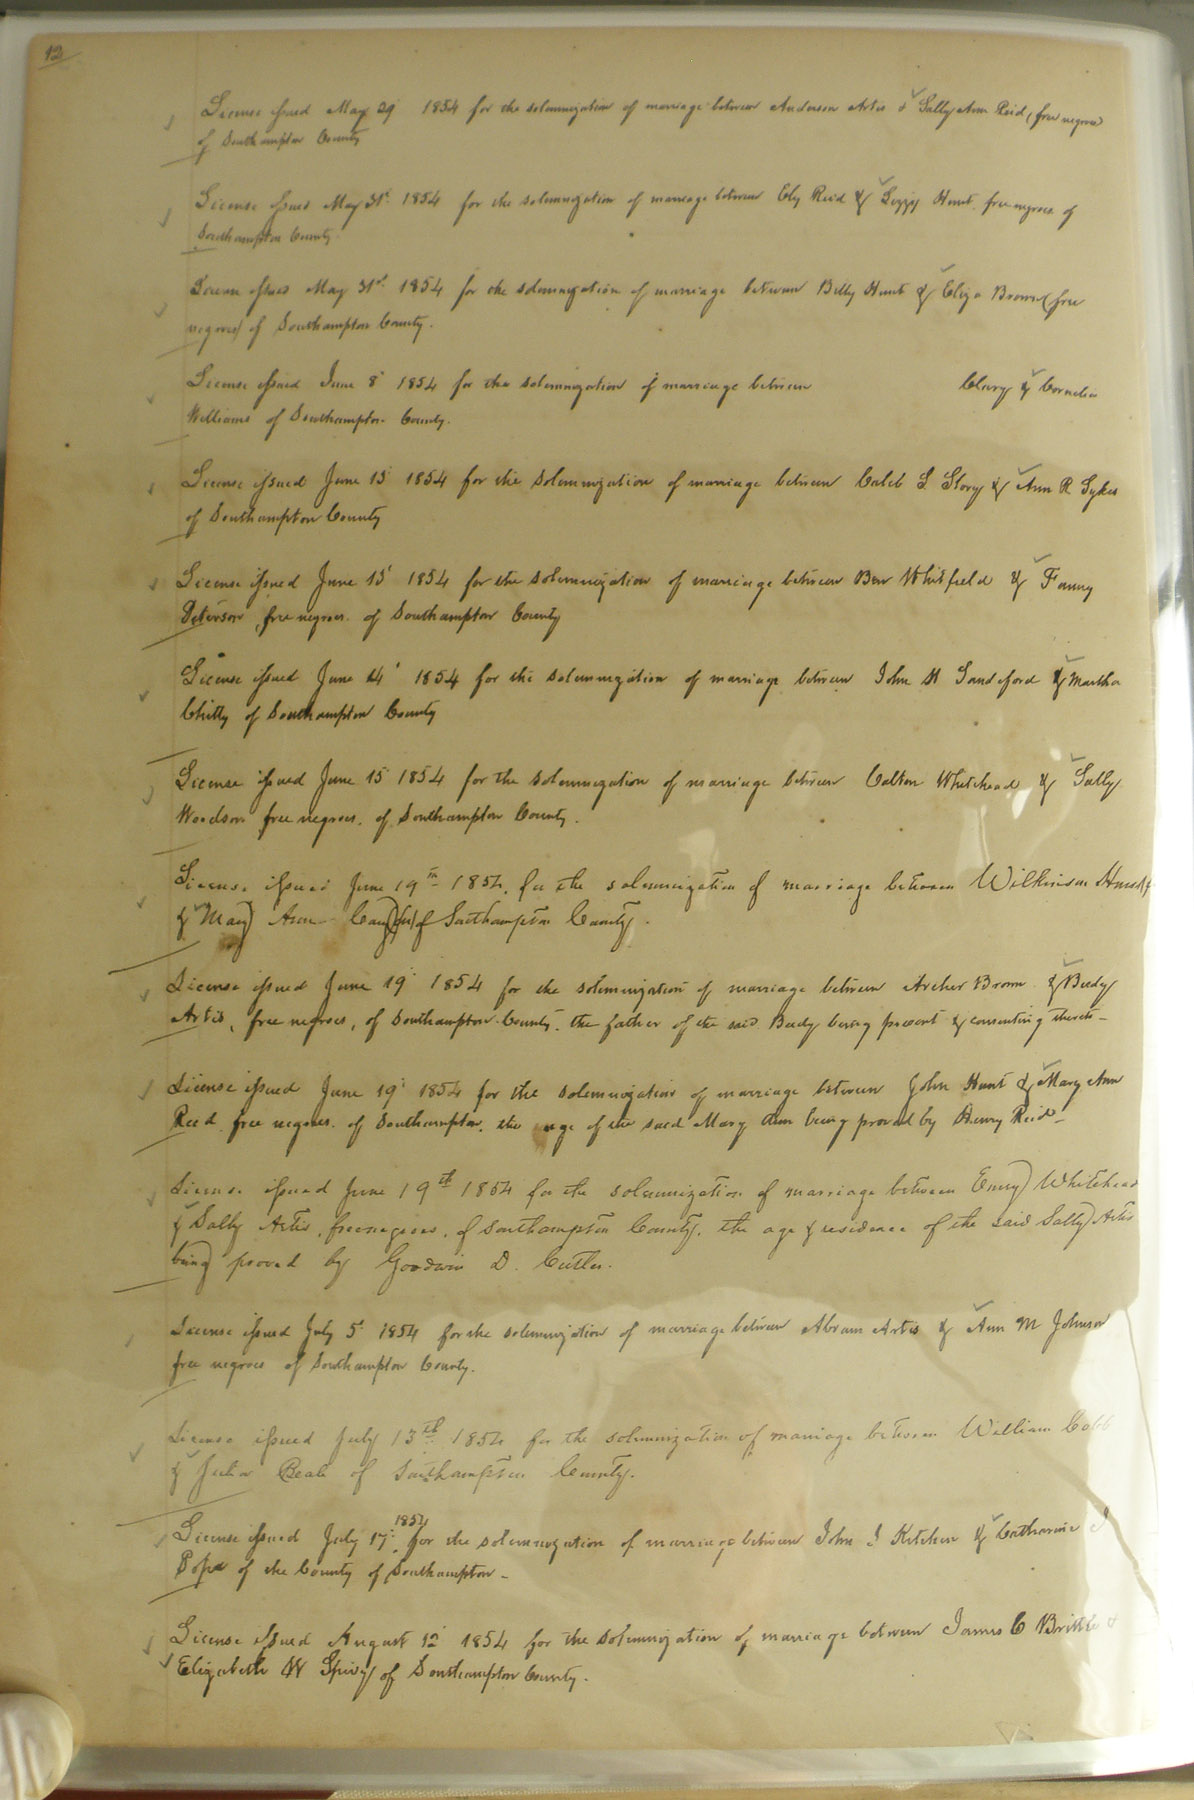 12
License issued May 29 1854 for the solemnization of marriage between Anderson Artis & Sally Ann Reid (free negroes)
of Southampton County
License issued May 31st 1854 for the solemnization of marriage between Ely Reid & Lizzy Hunt free negroes of
Southampton County
License issued May 31st 1854 for the solemnization of marriage between Billy Hunt & Eliza Brown (free
negroes) of Southampton County.
License issued June 8 1854 for the solemnization of marriage between Clary & Cornelia
Williams of Southampton County.
License issued June 13 1854 for the solemnization of marriage between Caleb L Story & Ann R Sykes
of Southampton County
License issued June 13 1854 for the solemnization of marriage between Ben Whitfield & Fanny
Peterson, free negroes of Southampton County
License issued June 14 1854 for the solemnization of marriage between John H Sandeford & Martha
Chitty of Southampton County
License issued June 15 1854 for the solemnization of marriage between Colton Whitehead & Sally
Woodson free negroes, of Southampton County.
License issued June 19th 1854, for the solemnization of marriage between Wilkinson
& Mary Ann of Southampton County.
License issued June 19 1854 for the solemnization of marriage between Archer Brown & Beedy
Artis, free negroes, of Southampton County, the father of the said Beedy being present & consenting thereto -
License issued June 19 1854 for the solemnization of marriage between John Hunt & Mary Ann
Reed free negroes of Southampton, the age of the said Mary Ann being proved by Henry Reid -
License issued June 19th 1854 for the solemnization of marriage between Emory Whitehead
& Sally Artis, free negroes, of Southampton County, the age & residence of the said Sally Artis
being proved by Goodwin D. Cutler.
License issued July 5 1854 for the solemnization of marriage between Abram Artis & Ann M Johnson
free negroes of Southampton County.
License issued July 13th 1854 for the solemnization of marriage between William Cobb
& Julia Beale of Southampton County.
License issued July 17 1854 for the solemnization of marriage between John J Kitchen & Catharine J
Pope of the County of Southampton -
License issued August 12 1854 for the solemnization of marriage between James C Brittle &
Elizabeth W Spivy of Southampton County.